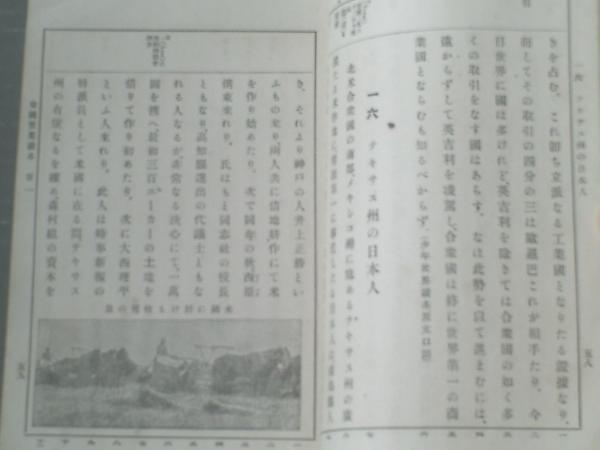 一六 テキサス州の日本人
五八
きを占む。これ即ち立派なる工業國となりたる證據なり。
而してその取引の四分の三は歐邏巴これが相手たり。今
日世界に國は多けれど、英吉利を除きては合衆國の如く多
くの取引をなす國はあらず。なほ此勢を以て進まむには、
遠からずして英吉利を凌駕し、合衆國は終に世界第一の商
業國とならむも知るべからず。
一六 テキサス州の日本人
北米合衆國の南部、メキシコ灣に臨めるテキサス州の廣
き、それより神戸の人井上正勝とい
ふもの來り、兩人共に借地耕作にて米
を作り始めたり。次で同年の秋西原
清東來れり。氏はもと同志社の校長
ともなり、高知縣選出の代議士ともな
れる人なるが、非常なる決心にて、一萬
圓を携へ、最初三百エーカーの土地を
借りて作り初めたり。次に大西理平
といふ人來れり。此人は時事新報の
特派員として米國に在る間、テキサス
州の有望なるを確め、森村組の資本を
米國に於ける收穫の景
帝國實業讀本 卷一
五九